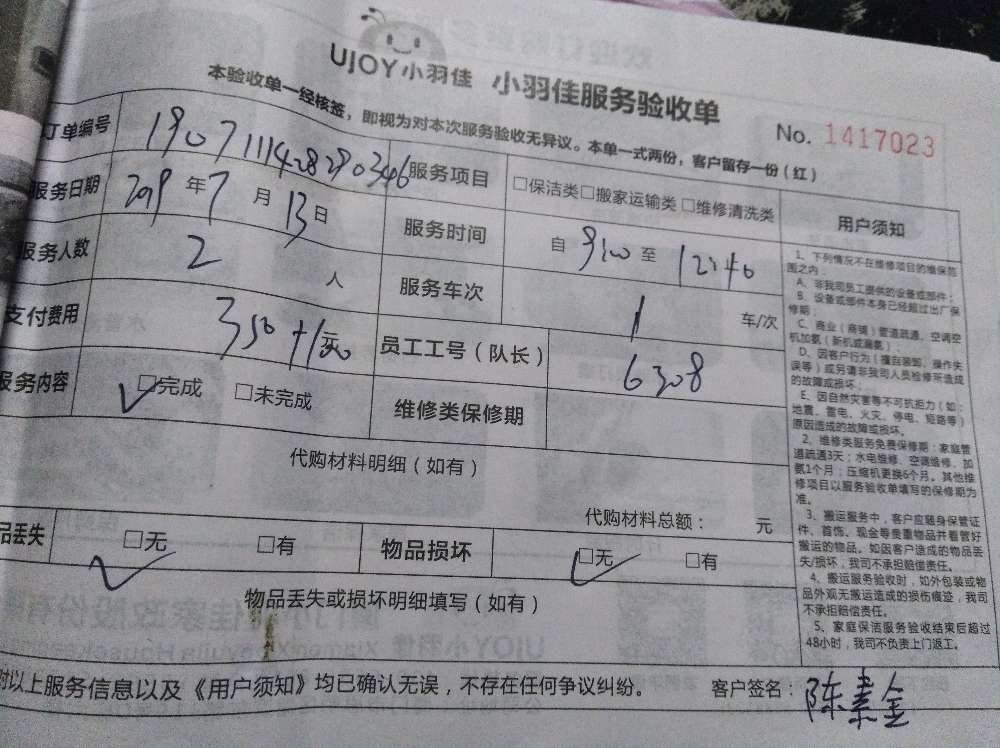 UJOY小羽佳 小羽佳服务验收单
本验收单一经核签，即视为对本次服务验收无异议。本单一式两份，客户留存一份（红）
No. 1417023
订单编号 1907111428290346 服务项目 □保洁类□搬家运输类 □维修清洗类
服务日期 2019年7月13日 服务时间 自 9:00 至 12:40
服务人数 2 人 服务车次 1 车/次
支付费用 350 元 员工工号（队长） 6308
服务内容 □完成 □未完成 维修类保修期
代购材料明细（如有）
代购材料总额： 元
品丢失 □无 □有 物品损坏 □无 □有
物品丢失或损坏明细填写（如有）
对以上服务信息以及《用户须知》均已确认无误，不存在任何争议纠纷。 客户签名：陈素金
用户须知
1、下列情况不在维修项目的维保范
围之内：
A、非我司员工提供的设备或部件；
B、设备或部件本身已经超过出厂保
修期；
C、商业（商铺）管道疏通、空调空
机加氨（新机或漏氨）；
D、因客户行为（擅自装卸、操作失
误等）或另请非我司人员检修所造成
的故障或损坏；
E、因自然灾害等不可抗拒力（如：
地震、雷电、火灾、停电、短路等）
原因造成的故障或损坏。
2、维修类服务免费保修期：家庭管
道疏通3天；水电维修、空调维修、加
氨1个月；压缩机更换6个月。其他维
修项目以服务验收单填写的保修期为
准。
3、搬运服务中，客户应随身保管证
件、首饰、现金等贵重物品并看管好
搬运的物品。如因客户造成的物品丢
失/损坏，我司不承担赔偿责任。
4、搬运服务验收时，如外包装或物
品外观无搬运造成的损伤痕迹，我司
不承担赔偿责任。
5、家庭保洁服务验收结束后超过
48小时，我司不负责上门返工。